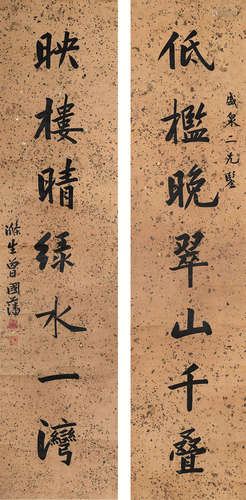 低檻晚翠山千叠
盛泉二兄鑒
映樓晴緑水一灣
滌生曾國藩